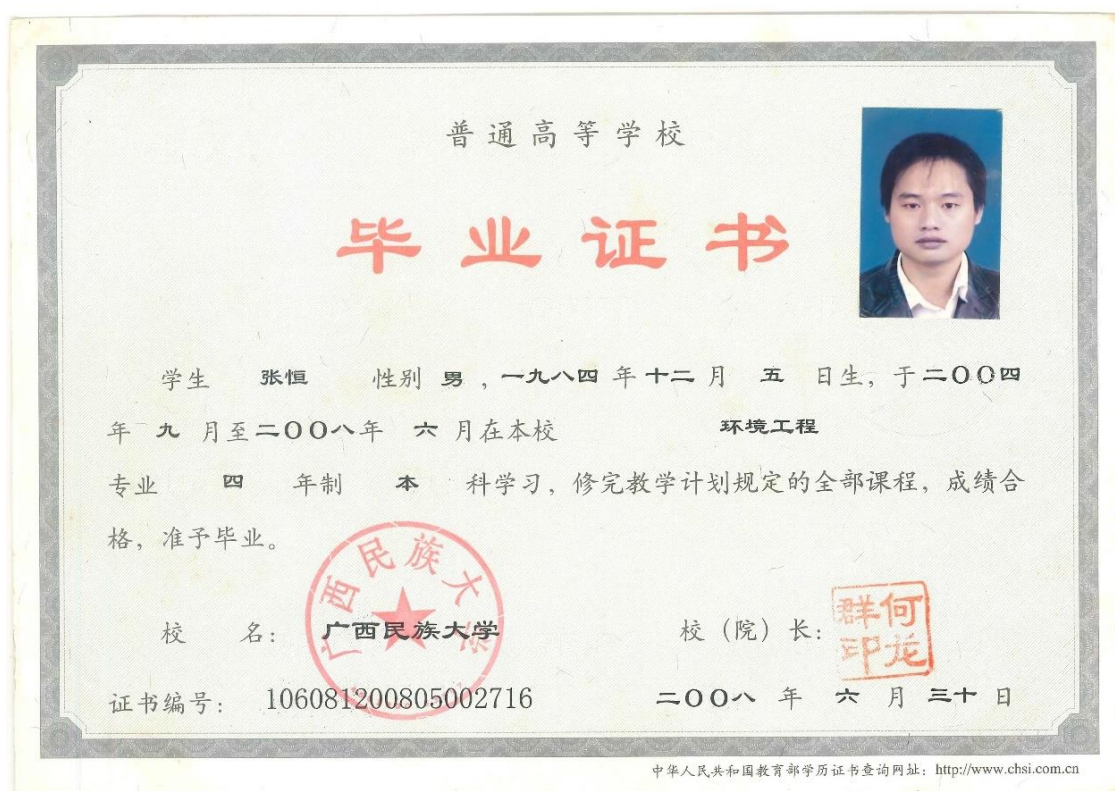 普通高等学校
毕业证书
学生 张恒 性别 男 ,一九八四 年 十二 月 五 日生, 于 二〇〇四
年 九 月至 二〇〇八 年 六 月在本校 环境工程
专业 四 年制 本 科学习, 修完教学计划规定的全部课程, 成绩合
格, 准予毕业。
广西民族大学
校 名: 广西民族大学 校（院）长: 何龙群印
证书编号: 106081200805002716 二〇〇八 年 六 月 三十 日
中华人民共和国教育部学历证书查询网址: http://www.chsi.com.cn